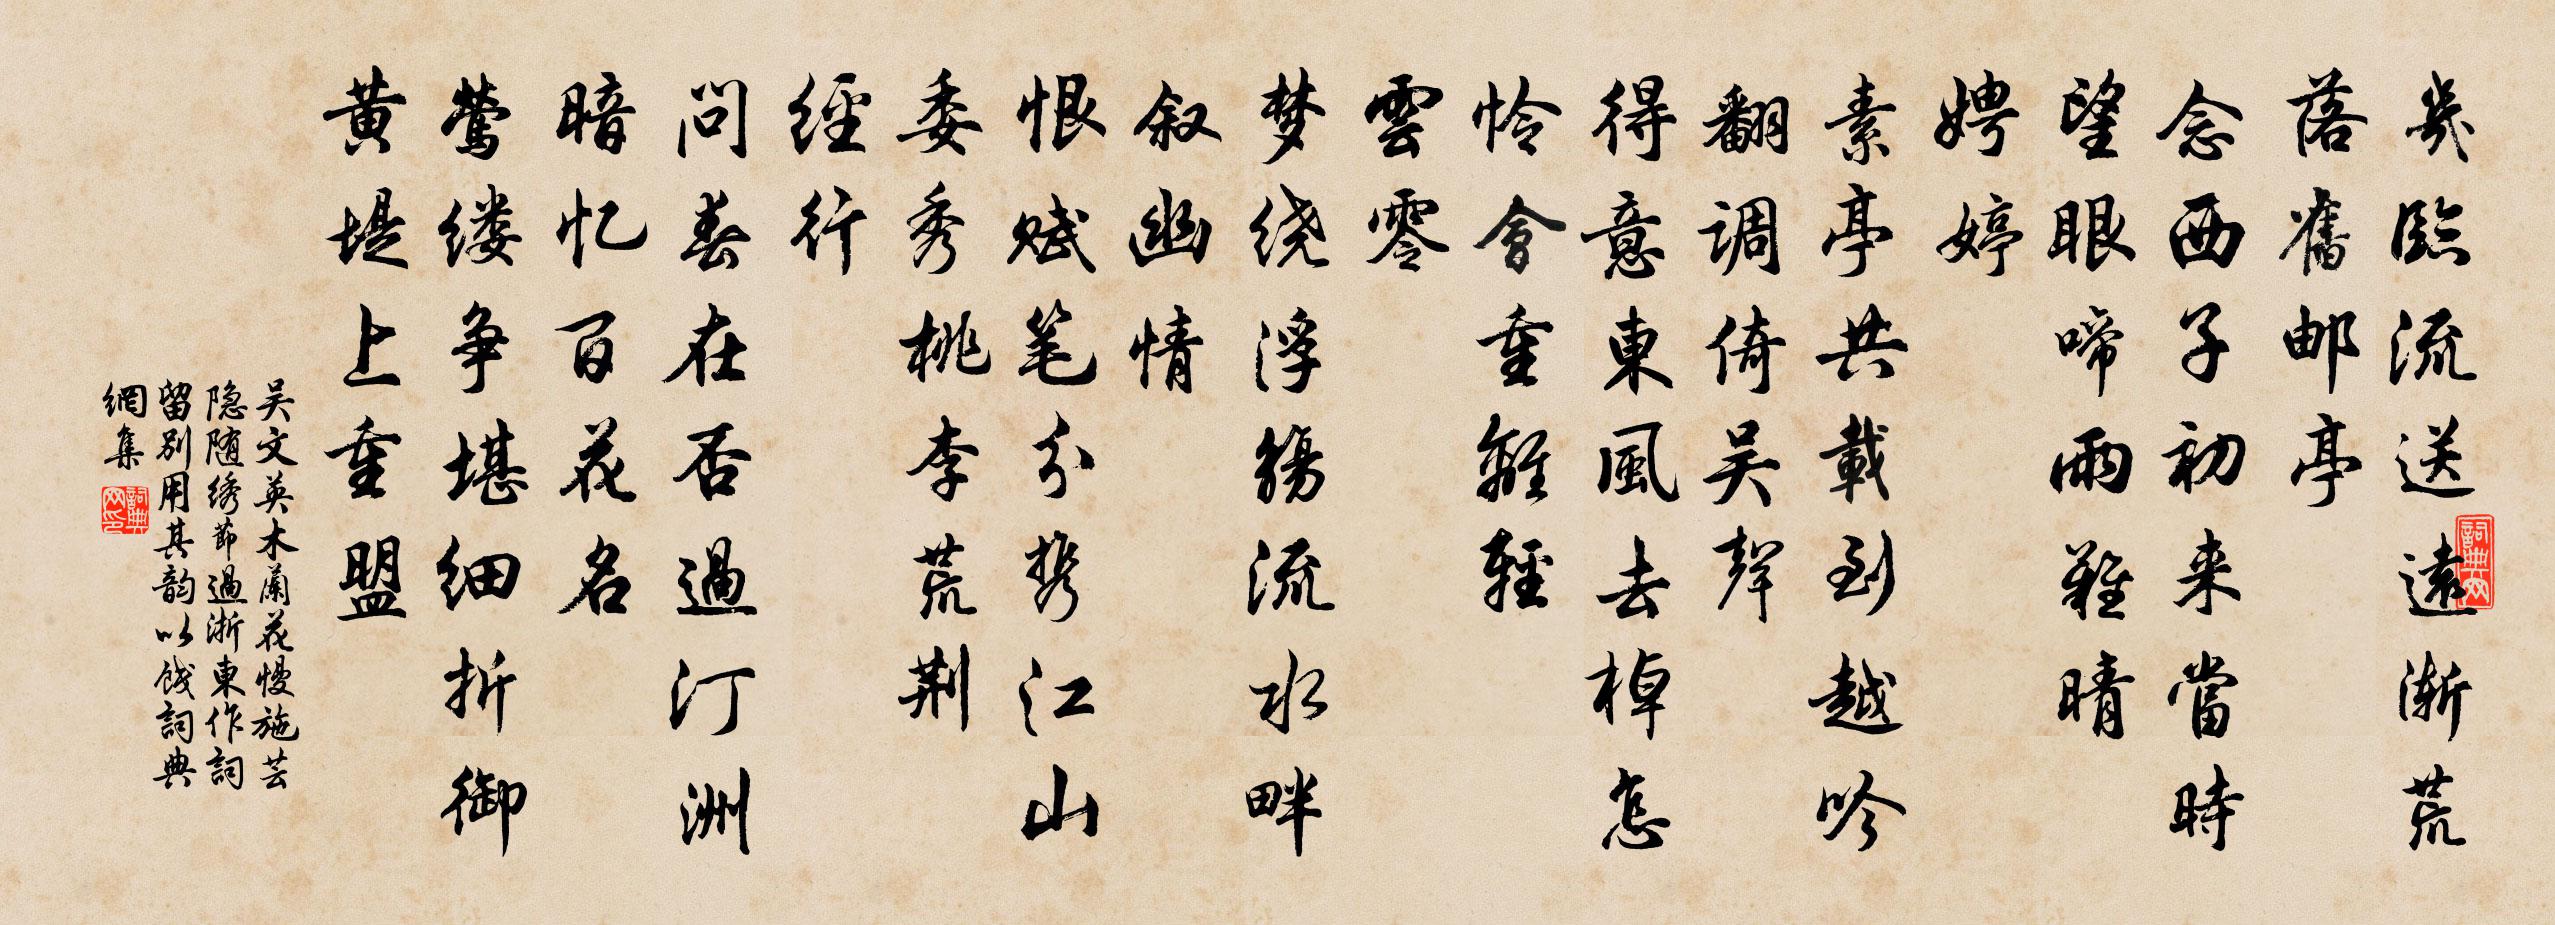 幾臨流送遠漸荒
落舊邮亭
念西子初来當時
望眼啼雨難晴
娉婷
素亭共載到越吟
翻調倚吴聲
得意東風去棹怎
怜會重離輕
雲零
梦绕浮觴流水畔
叙幽情
恨赋笔分携江山
委秀桃李荒荆
經行
問春在否過汀洲
暗忆百花名
鶯缕争堪细折御
黄堤上重盟
吴文英木蘭花慢施芸
隐随绣節過浙東作詞
留别用其韵以餞詞典
網集
詞典网
詞典网印